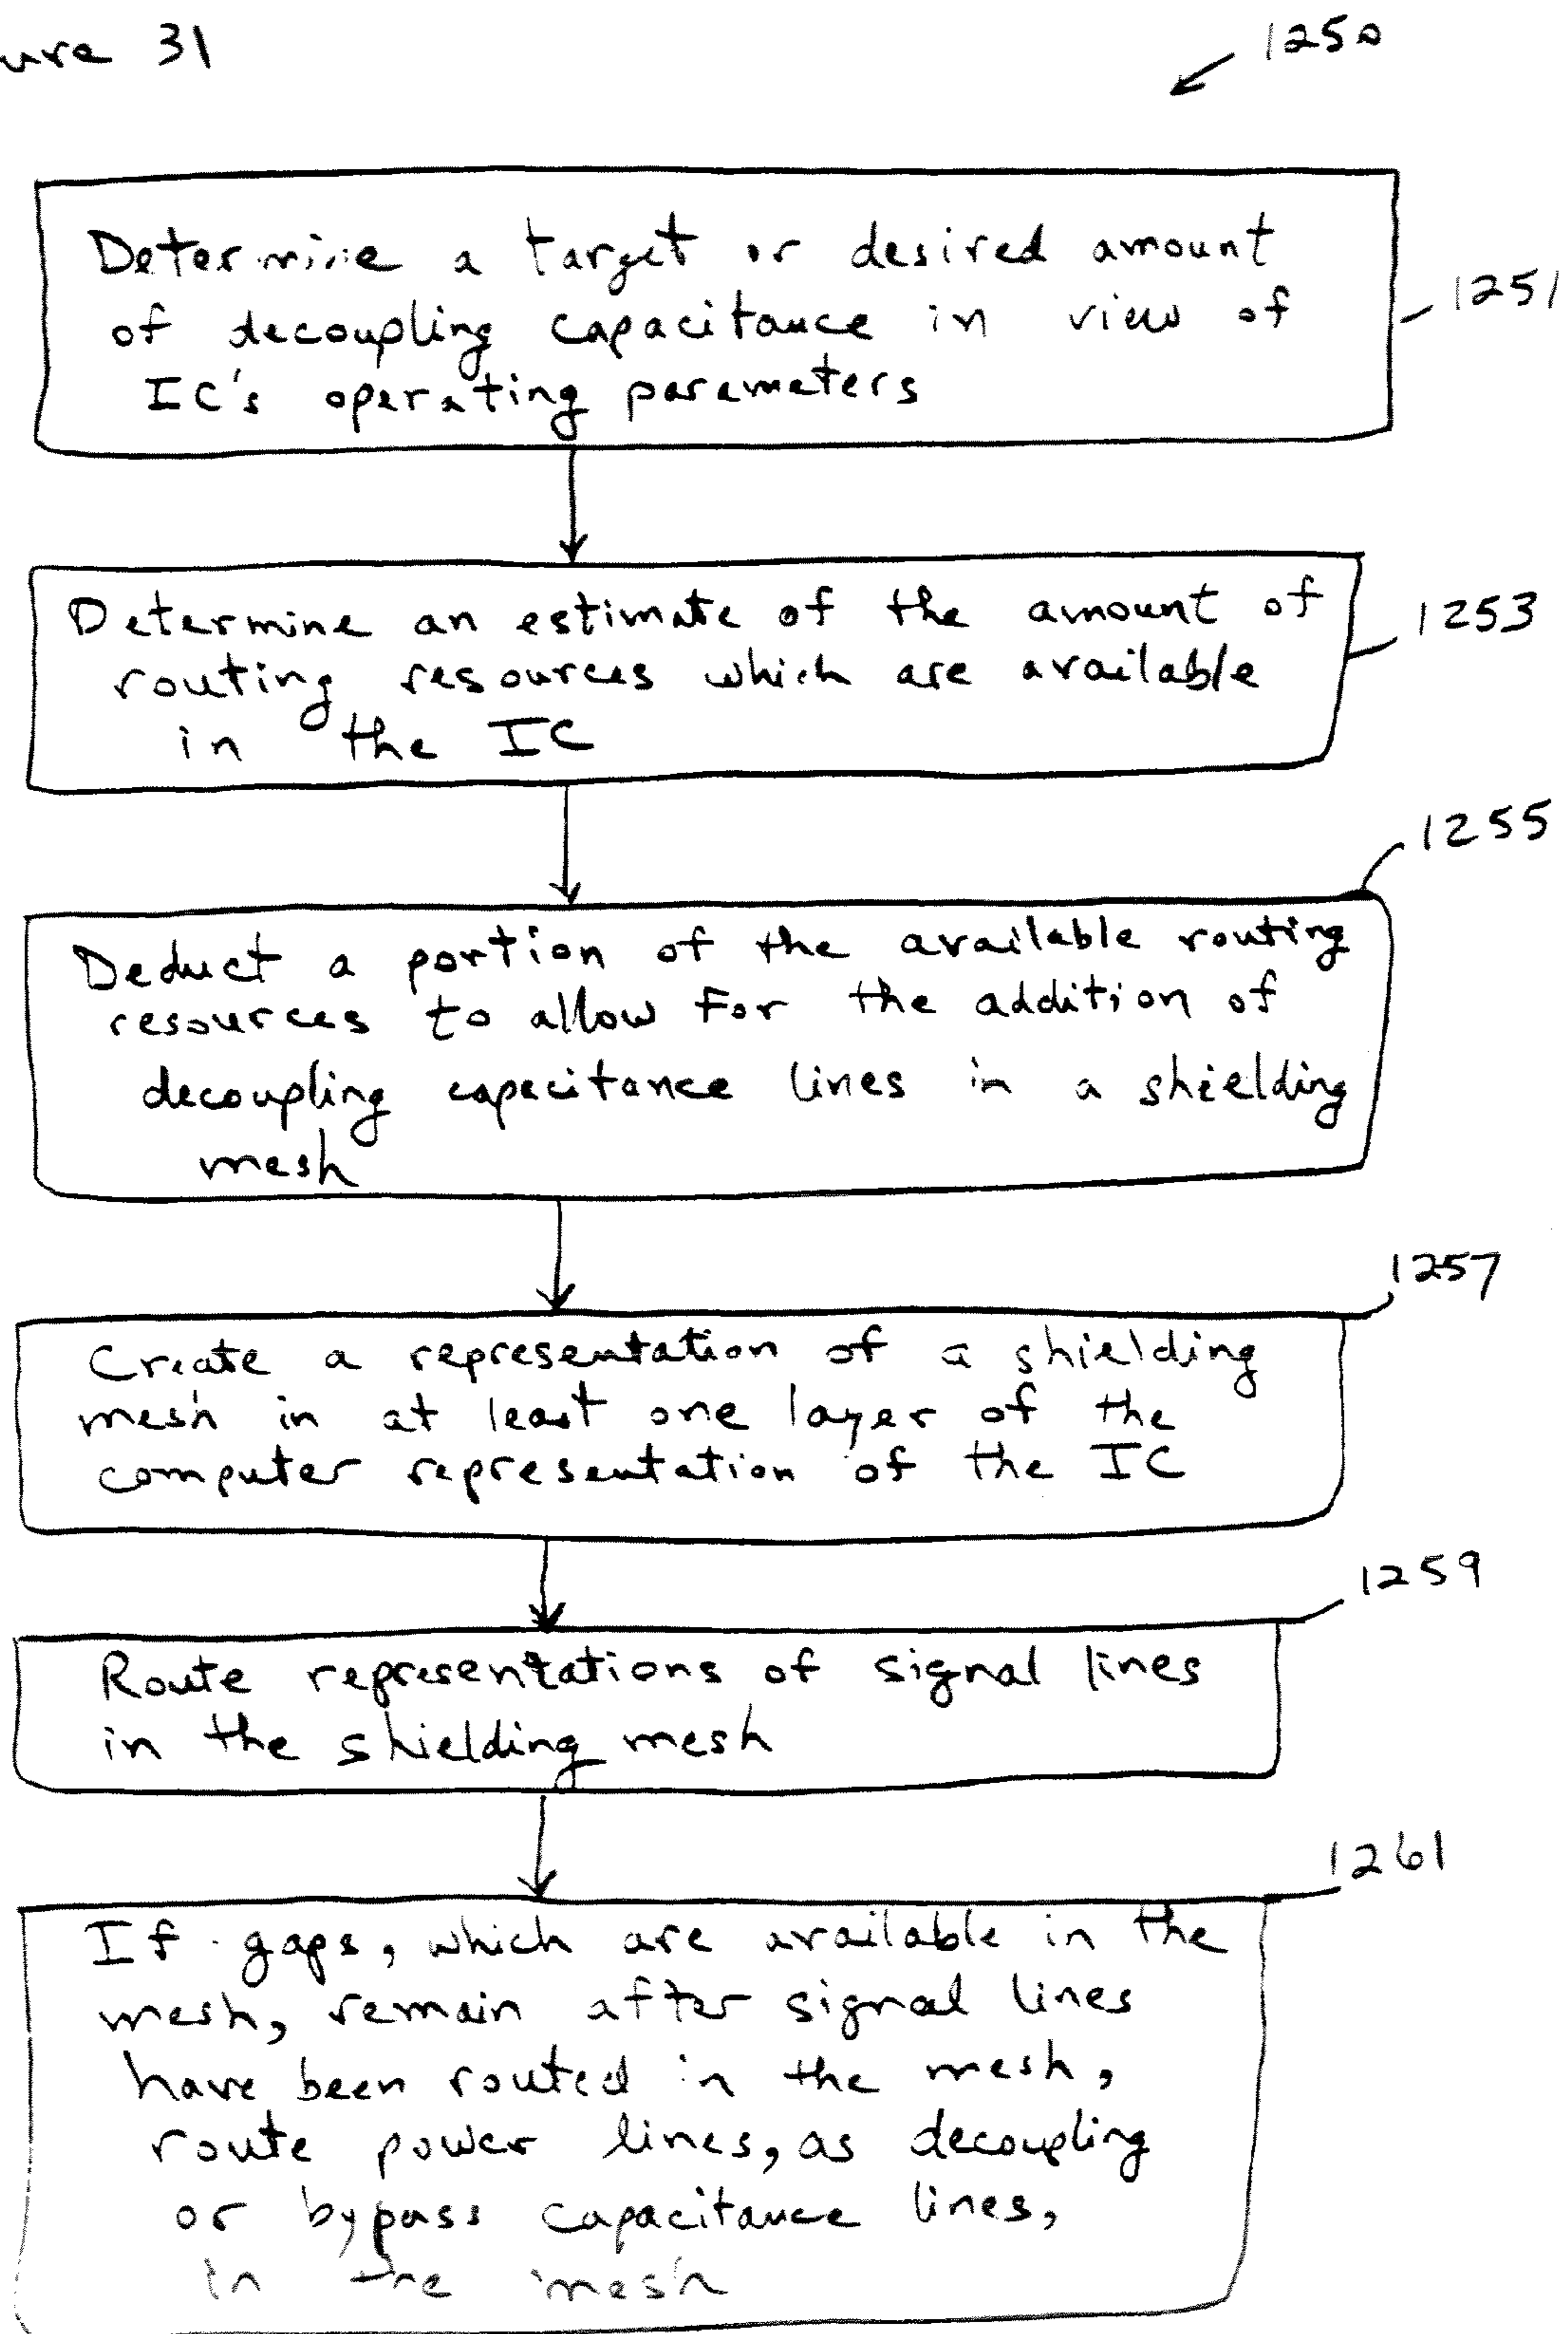 ure 31
1250
Determine a target or desired amount
of decoupling capacitance in view of
IC's operating parameters
1251
Determine an estimate of the amount of
routing resources which are available
in the IC
1253
1255
Deduct a portion of the available routing
resources to allow for the addition of
decoupling capacitance lines in a shielding
mesh
1257
Create a representation of a shielding
mesh in at least one layer of the
computer representation of the IC
1259
Route representations of signal lines
in the shielding mesh
1261
If gaps, which are available in the
mesh, remain after signal lines
have been routed in the mesh,
route power lines, as decoupling
or bypass capacitance lines,
in the mesh